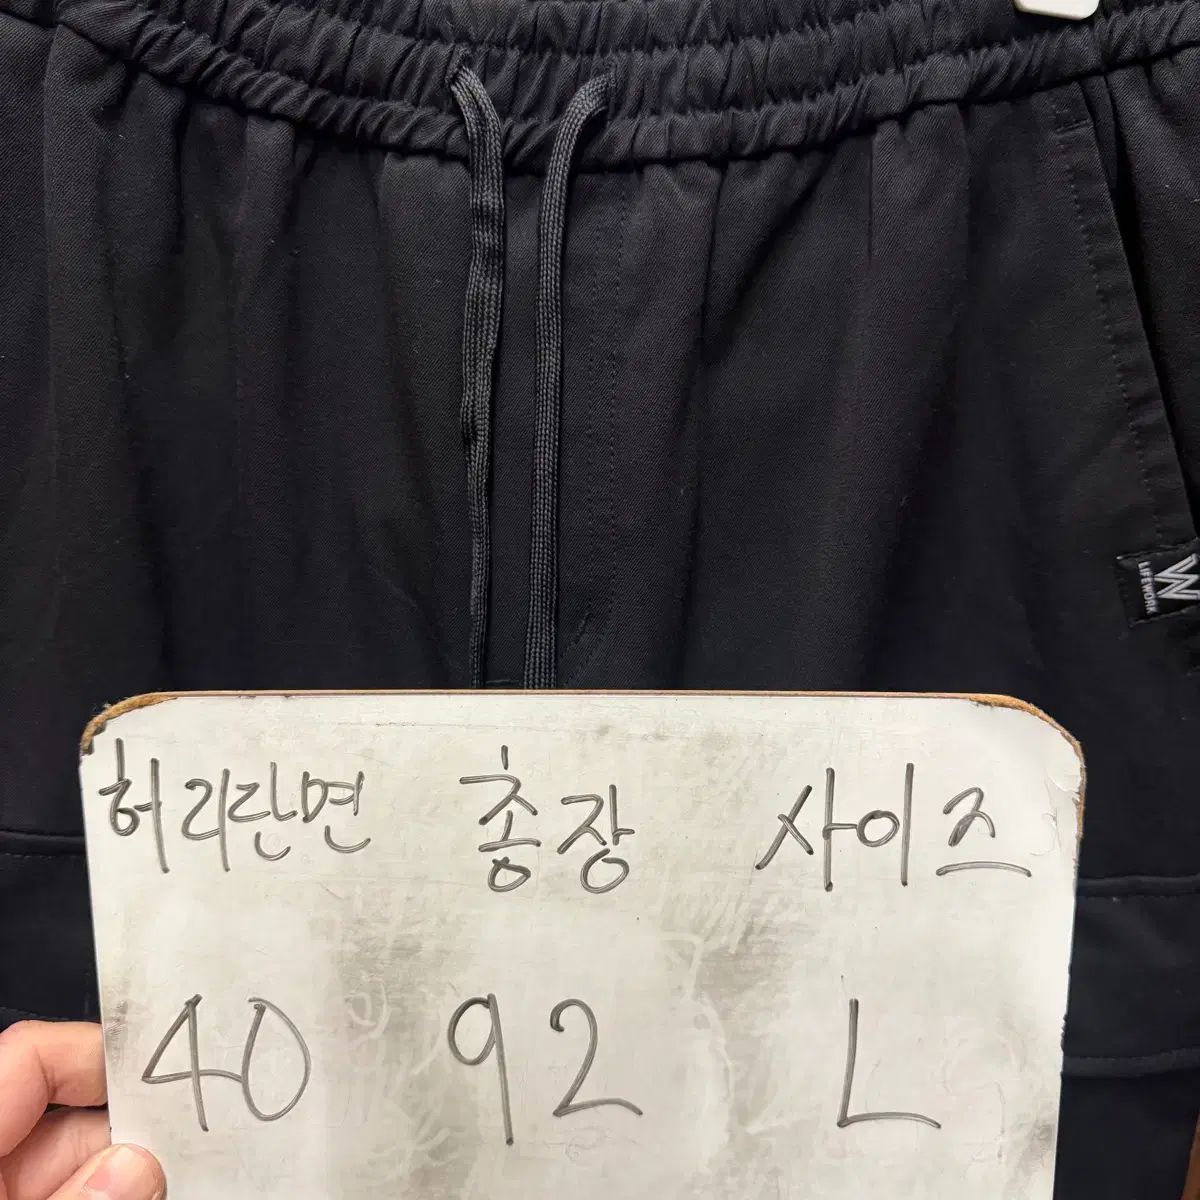 W
LIFEWORK
허리단면 총장 사이즈
40 92 L